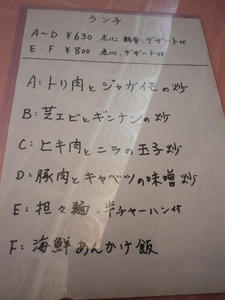 ランチ
A〜D ¥630 点心 デザート付
E・F ¥800 点心、デザート付
A:トリ肉とジャガイモの炒
B:芝エビとギンナンの炒
C:ヒキ肉とニラの玉子炒
D:豚肉とキャベツの味噌炒
E:担々麺・半チャーハン付
F:海鮮あんかけ飯